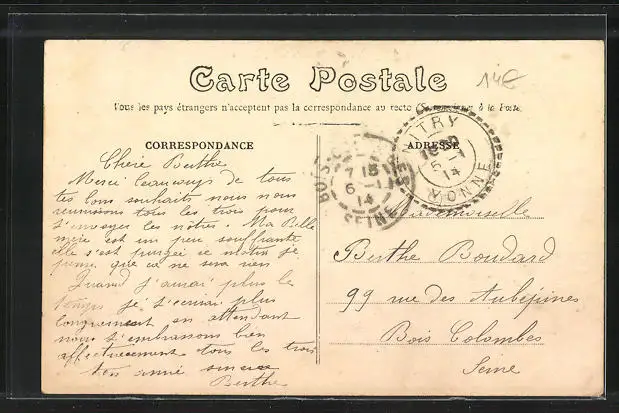 Carte Postale
14€
Tous les pays étrangers n'acceptent pas la correspondance au recto à la Poste.
CORRESPONDANCE
ADRESSE
VITRY
YONNE
5-1
14
BOIS-
SEINE
6-1
14
Chère Berthe
Merci beaucoup de tous
tes bons souhaits nous nous
reunissons tous les trois pour
t'envoyer les nôtres. Ma Belle
mère est un peu souffrante
elle s'est purgée ce matin je
pense que ce ne sera rien
Quand j'aurai plus le
temps je t'ecrirai plus
longuement en attendant
nous t'embrassons bien
affectueusement tous les trois
ton amie sincère
Berthe
Mademoiselle
Berthe Boudard
99 rue des Aubépines
Bois Colombes
Seine